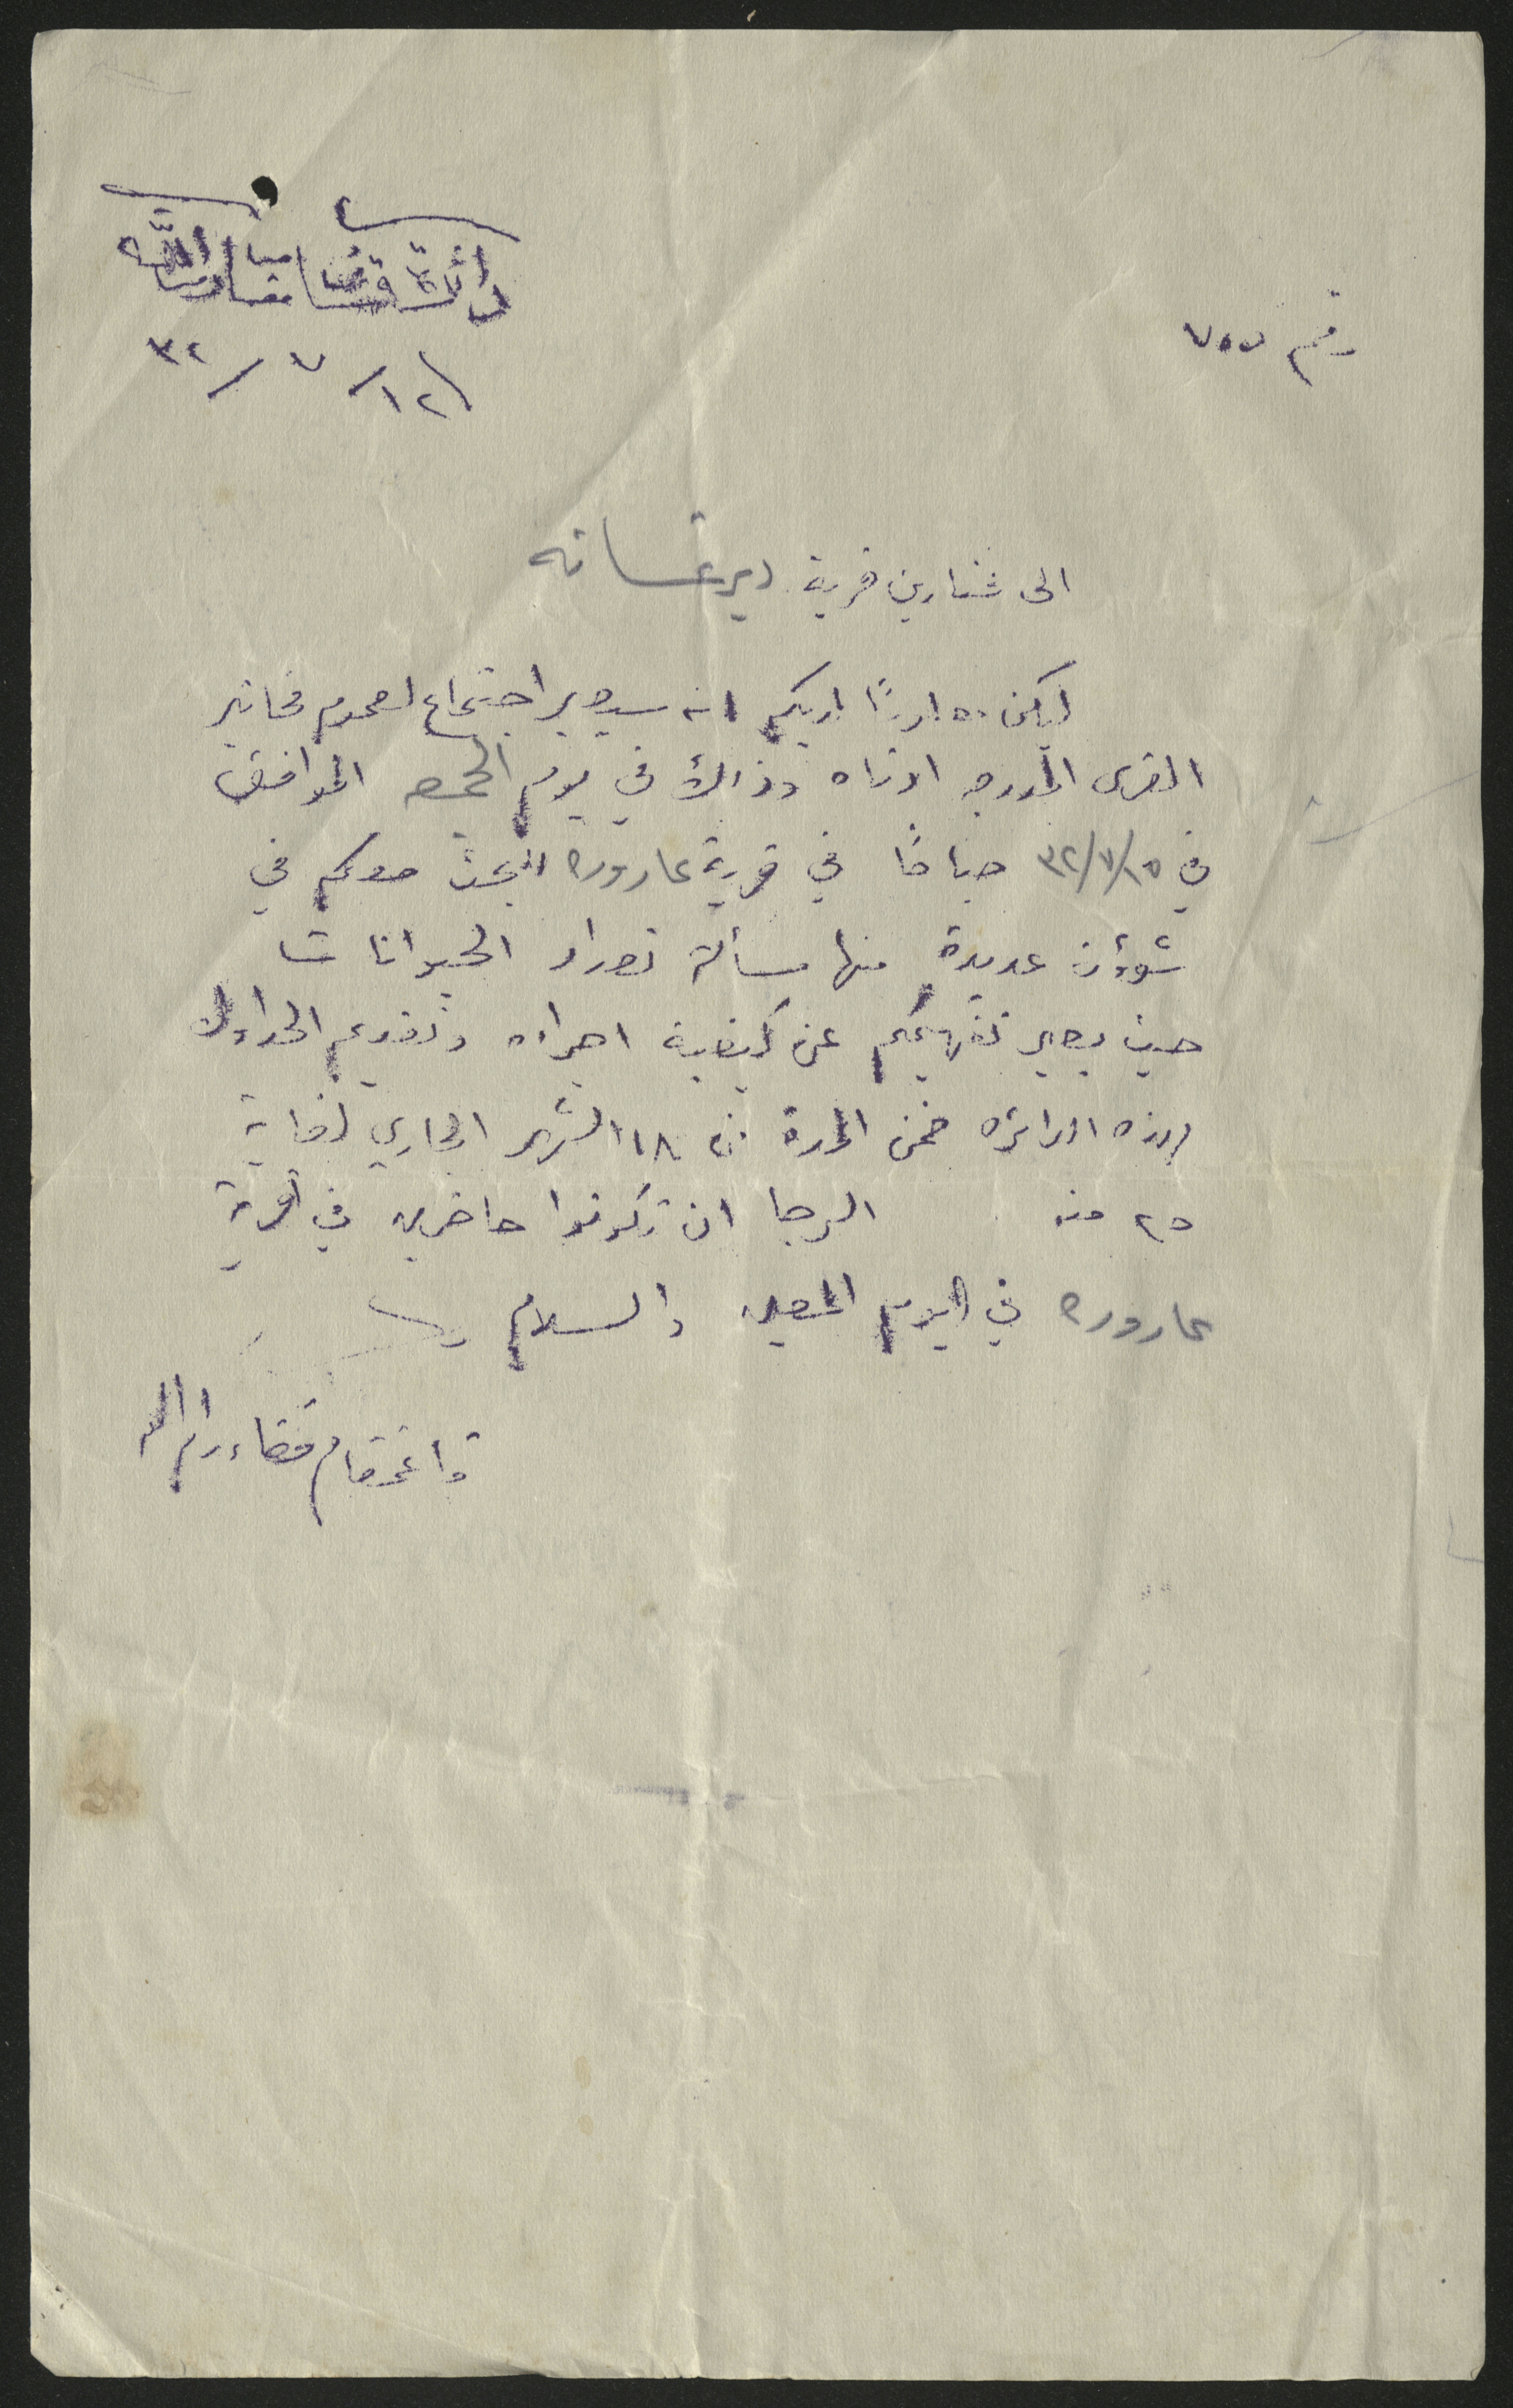 دائرة قائمقام رام الله
رقم ٧٥٧
١٢/ ٧ /٣٢
الى مختارين قرية ديرغسانه
ليكن معلومًا لديكم انه سيصير اجتماع لعموم مخاتير
القرى المدرجه ادناه وذلك في يوم الجمعه الموافق
في ١٥/٧/٣٢ صباحًا في قرية عاروره للبحث معكم في
شؤون عديدة منها مسألة تعداد الحيوانات
حيث يصير تفهيمكم عن كيفية اجراءه وتقديم الجداول
لهذه الدائره ضمن المدة من ١٨ الشهر الجاري لغاية
٢٥ منه الرجا ان تكونوا حاضرين في قرية
عاروره في اليوم المعين والسلام
قائمقام قضاء رام الله